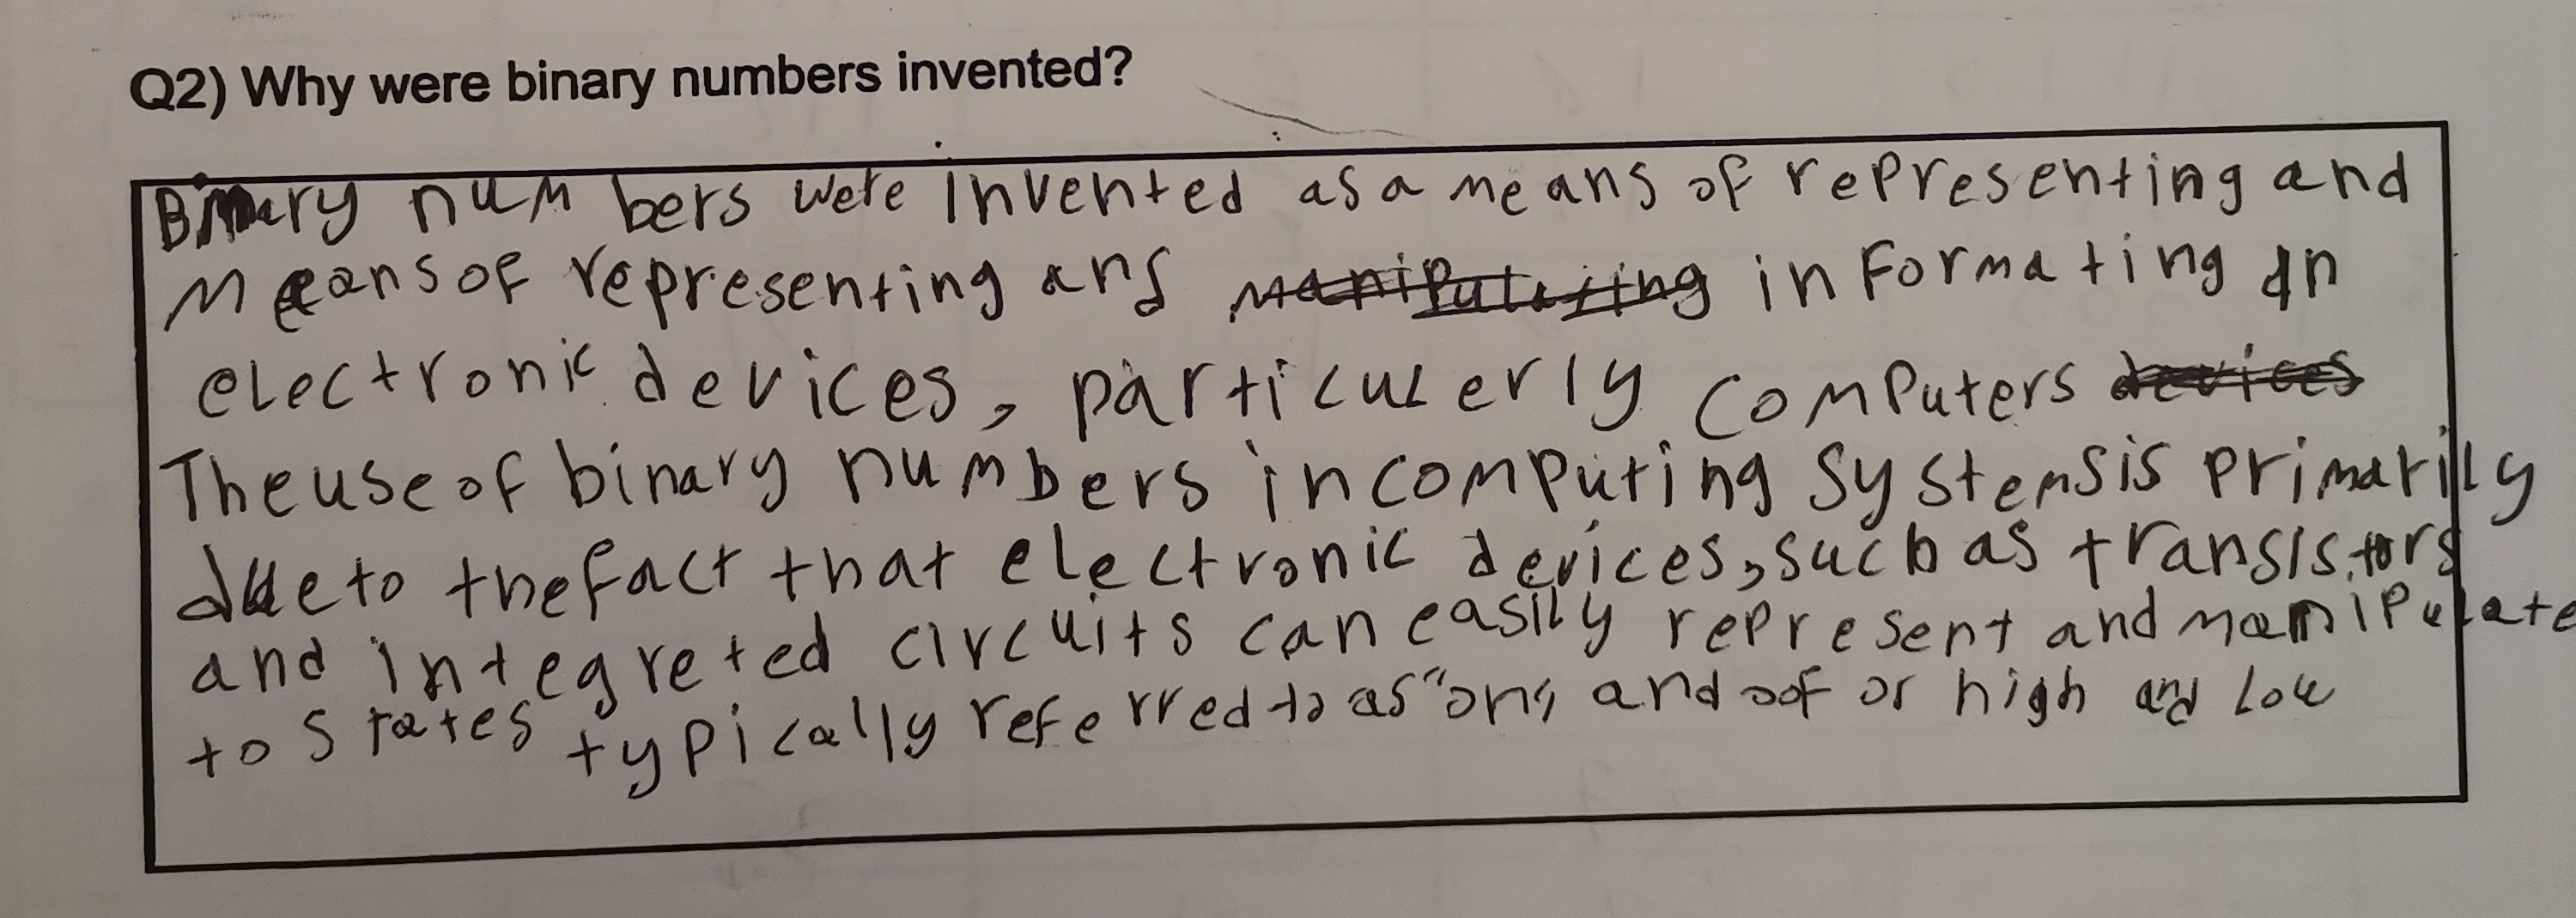 Q2) Why were binary numbers invented?
Binary num bers were invented as a means of representing and
Means of representing and manipulating informating in
electronic devices, particulerly computers devices
The use of binary numbers in computing systems is primarily
due to the fact that electronic devices, such as transistors
and integreted circuits can easily represent and manipulate
to states typically referred to as "on" and oof or high and low